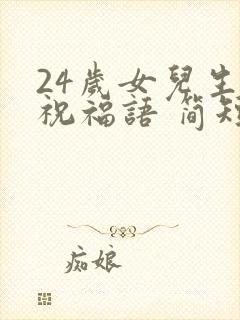 24歲女兒生
祝福語 簡短
痴娘